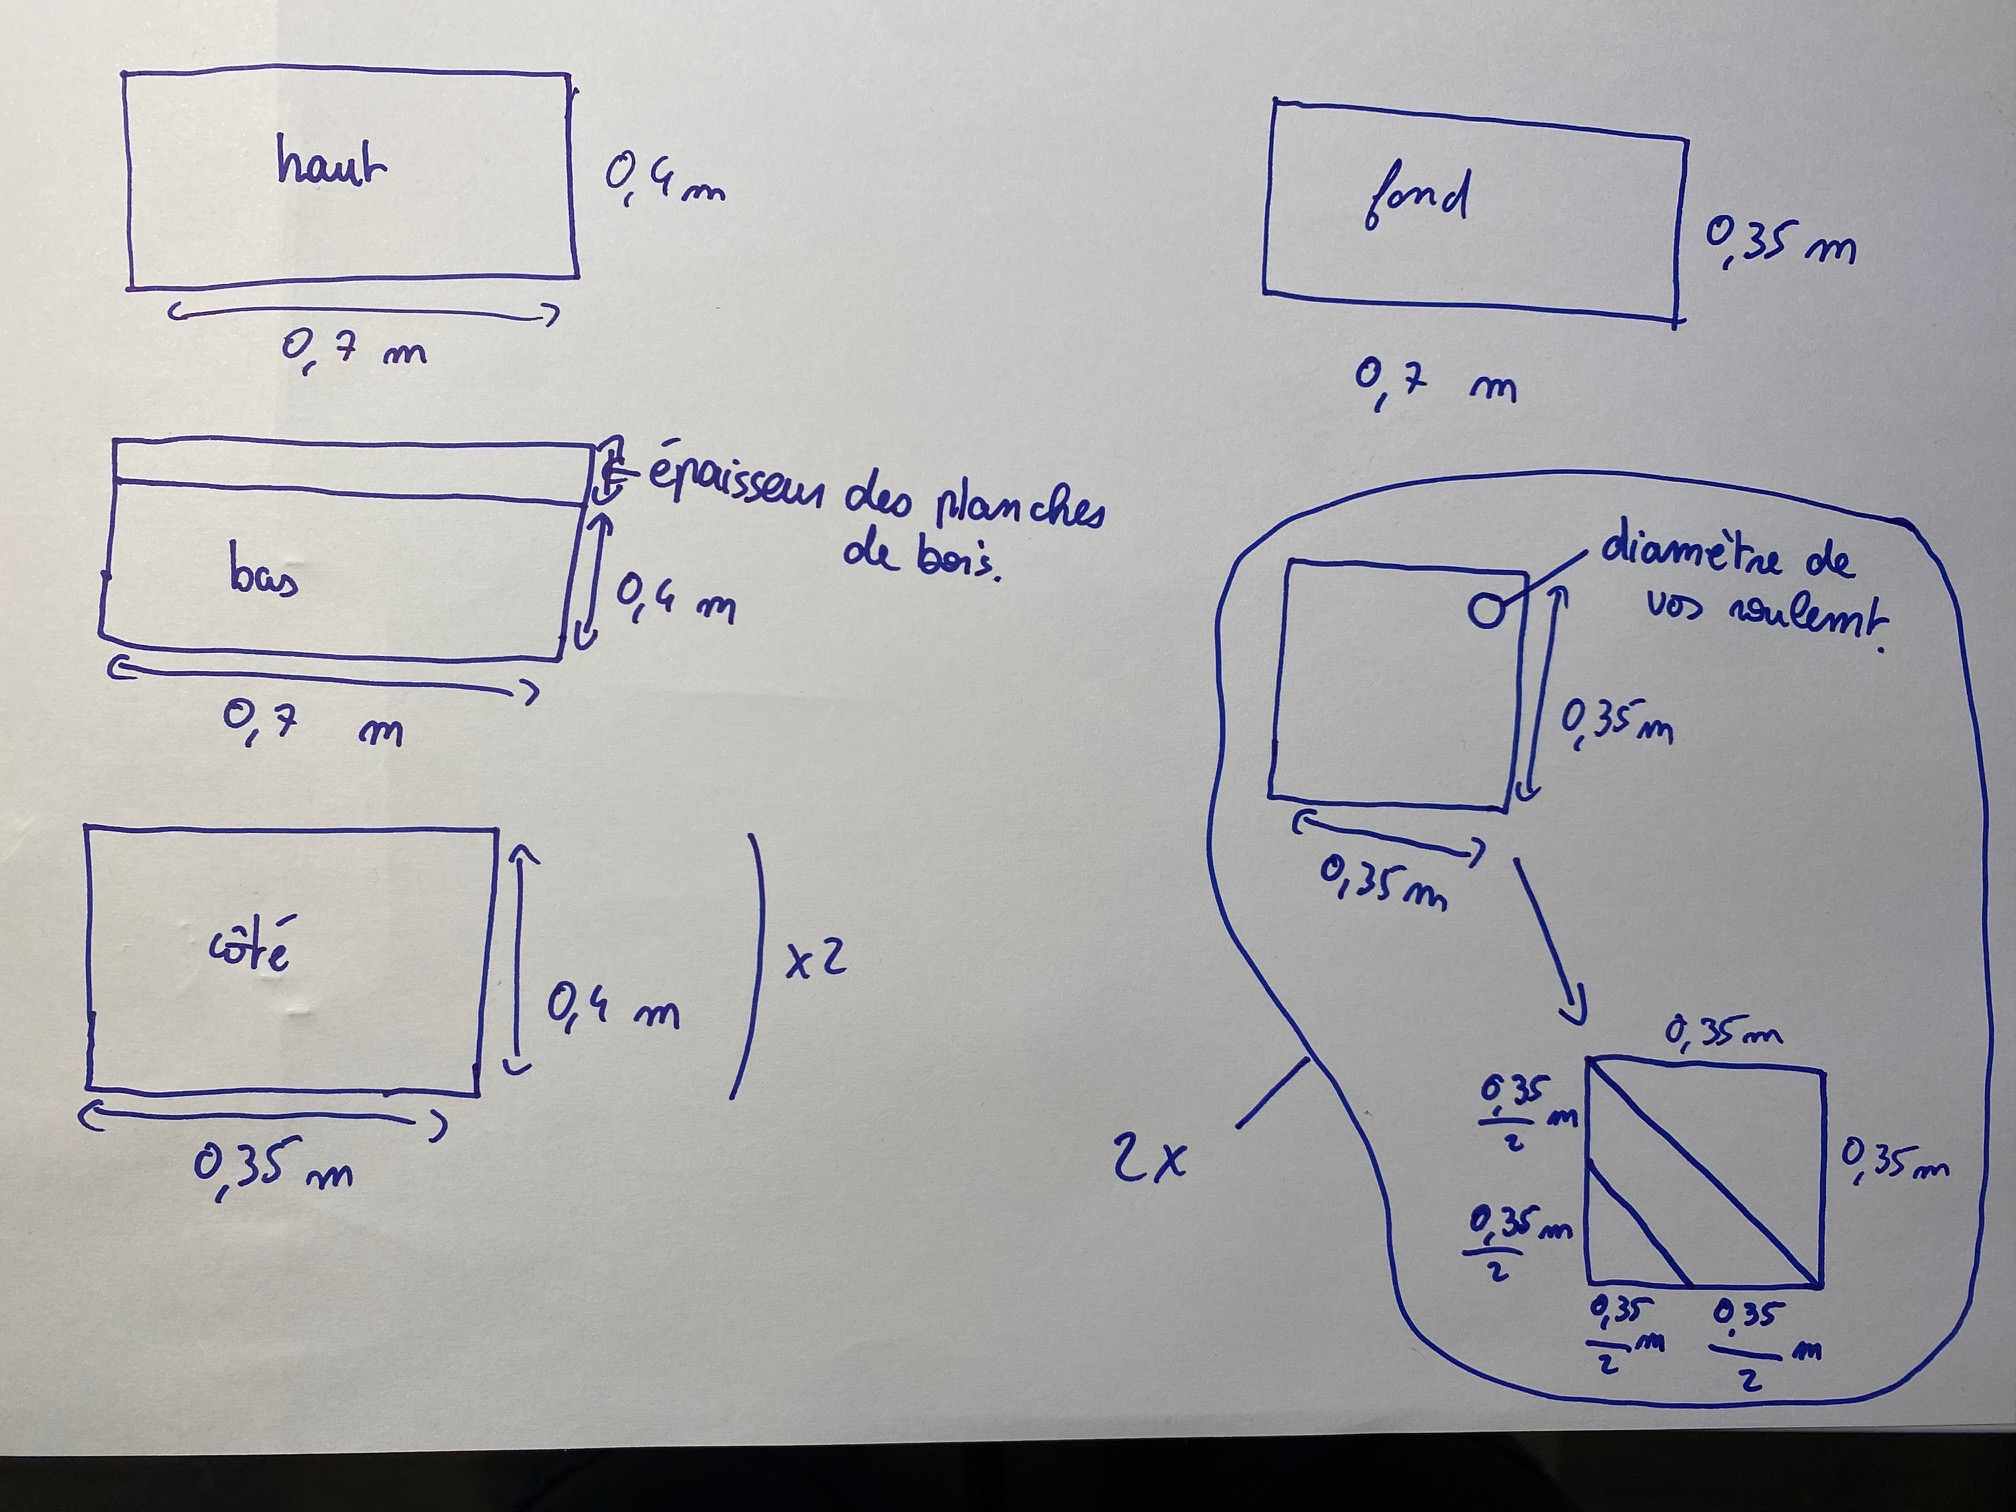 haut
0,4 m
0,7 m
épaisseur des planches
de bois.
bas
0,4 m
0,7 m
côté
0,4 m
x2
0,35 m
fond
0,35 m
0,7 m
diamètre de
vos roulemt.
0,35 m
0,35 m
2x
0,35 m
0,35/2 m
0,35 m
0,35 m/2
0,35/2 m
0,35/2 m